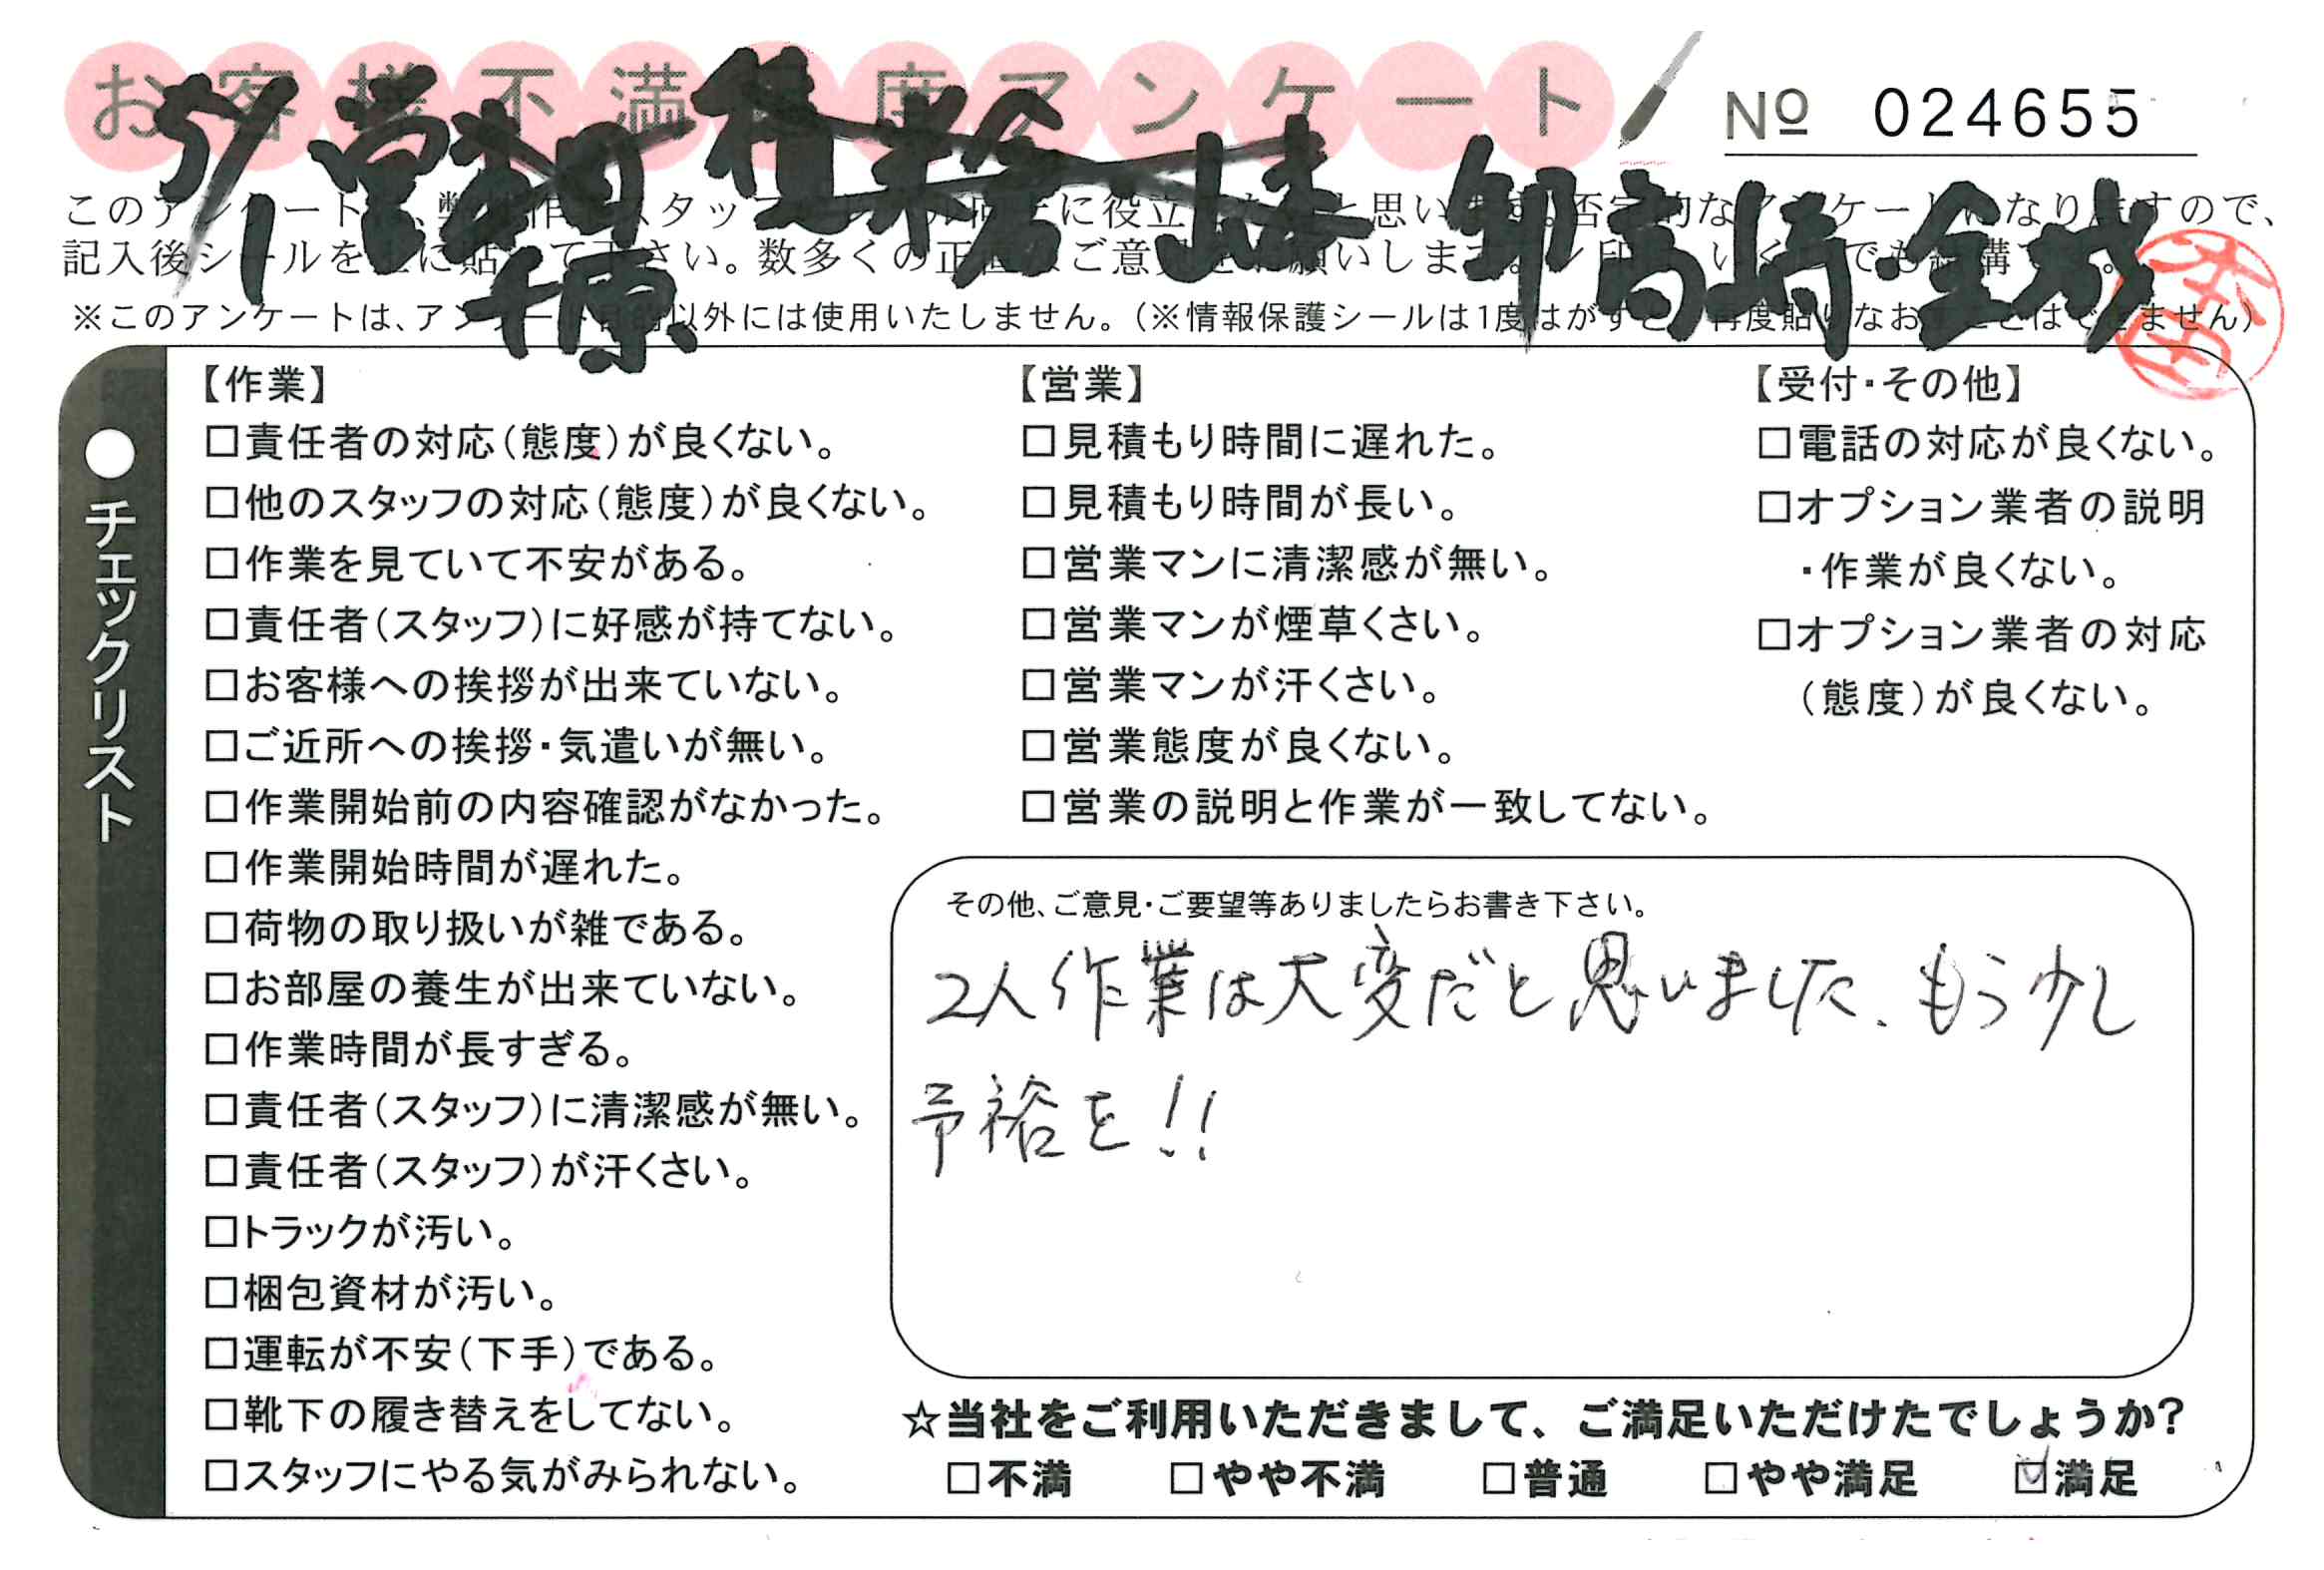 お客様不満足度アンケート
№ 024655
5/1 営 本田 積 山本 卸 高崎・金城
千原
本田
このアンケートは、スタッフに役立と思い否定的なアンケートになりますので、
記入後シールを上に貼って下さい。数多くの正直なご意見をお願いします。いくつでも結構です。
※このアンケートは、アンケート目的以外には使用いたしません。（※情報保護シールは1度はがすと、再度貼りなおすことはできません）
●チェックリスト
【作業】
□責任者の対応（態度）が良くない。
□他のスタッフの対応（態度）が良くない。
□作業を見ていて不安がある。
□責任者（スタッフ）に好感が持てない。
□お客様への挨拶が出来ていない。
□ご近所への挨拶・気遣いが無い。
□作業開始前の内容確認がなかった。
□作業開始時間が遅れた。
□荷物の取り扱いが雑である。
□お部屋の養生が出来ていない。
□作業時間が長すぎる。
□責任者（スタッフ）に清潔感が無い。
□責任者（スタッフ）が汗くさい。
□トラックが汚い。
□梱包資材が汚い。
□運転が不安（下手）である。
□靴下の履き替えをしてない。
□スタッフにやる気がみられない。
【営業】
□見積もり時間に遅れた。
□見積もり時間が長い。
□営業マンに清潔感が無い。
□営業マンが煙草くさい。
□営業マンが汗くさい。
□営業態度が良くない。
□営業の説明と作業が一致してない。
【受付・その他】
□電話の対応が良くない。
□オプション業者の説明
・作業が良くない。
□オプション業者の対応
（態度）が良くない。
その他、ご意見・ご要望等ありましたらお書き下さい。
2人作業は大変だと思いました、もう少し
予裕を!!
☆当社をご利用いただきまして、ご満足いただけたでしょうか?
□不満 □やや不満 □普通 □やや満足 ☑満足